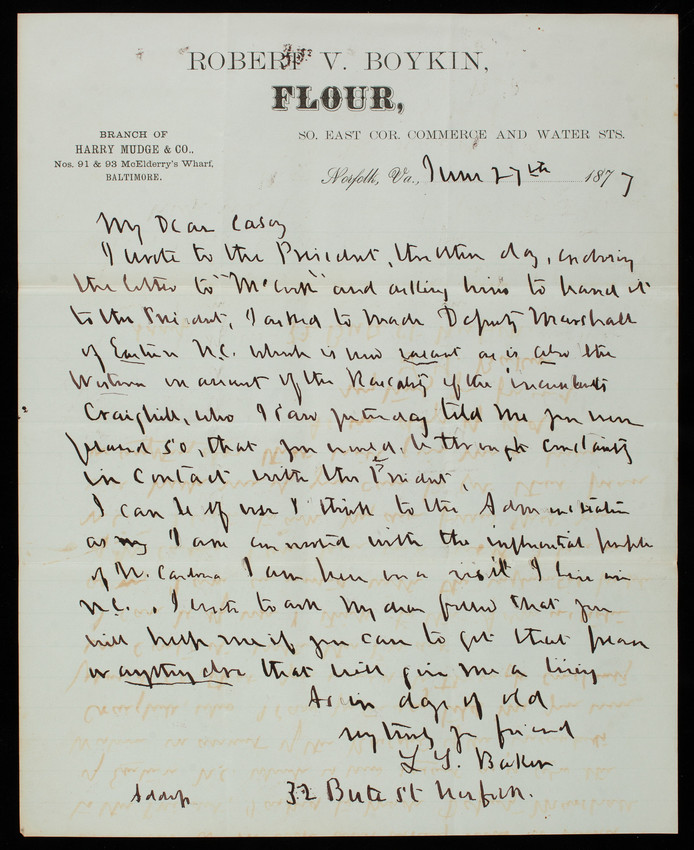 ROBERT V. BOYKIN,
FLOUR,
BRANCH OF
HARRY MUDGE & CO.,
Nos. 91 & 93 McElderry's Wharf,
BALTIMORE.
SO. EAST COR. COMMERCE AND WATER STS.
Norfolk, Va., June 27th 1877
My Dear Casey
I wrote to the President, the other day, enclosing
the letter to and asking him to hand it
to the President, I asked to made Deputy Marshall
of Eastern N.C. which is now vacant as is also the
Western on account of the Rascality of the incumbents
Craighill, who I saw yesterday told me you were
placed so, that you would be thrown constantly
in contact with the President.
I can be of use I think to the Administration
as I am connected with the influential people
of N. Carolina I am here on a visit I live in
N.C., I write to ask my dear friend that you
will help me if you can to get that place
or anything else that will give me a living
As in days of old
my truly yr friend
L. S. Baker
Address 32 Bute St Norfolk.